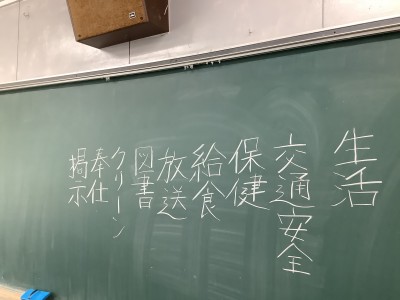 生活
交通安全
保健
給食
放送
図書
クリーン
奉仕
掲示